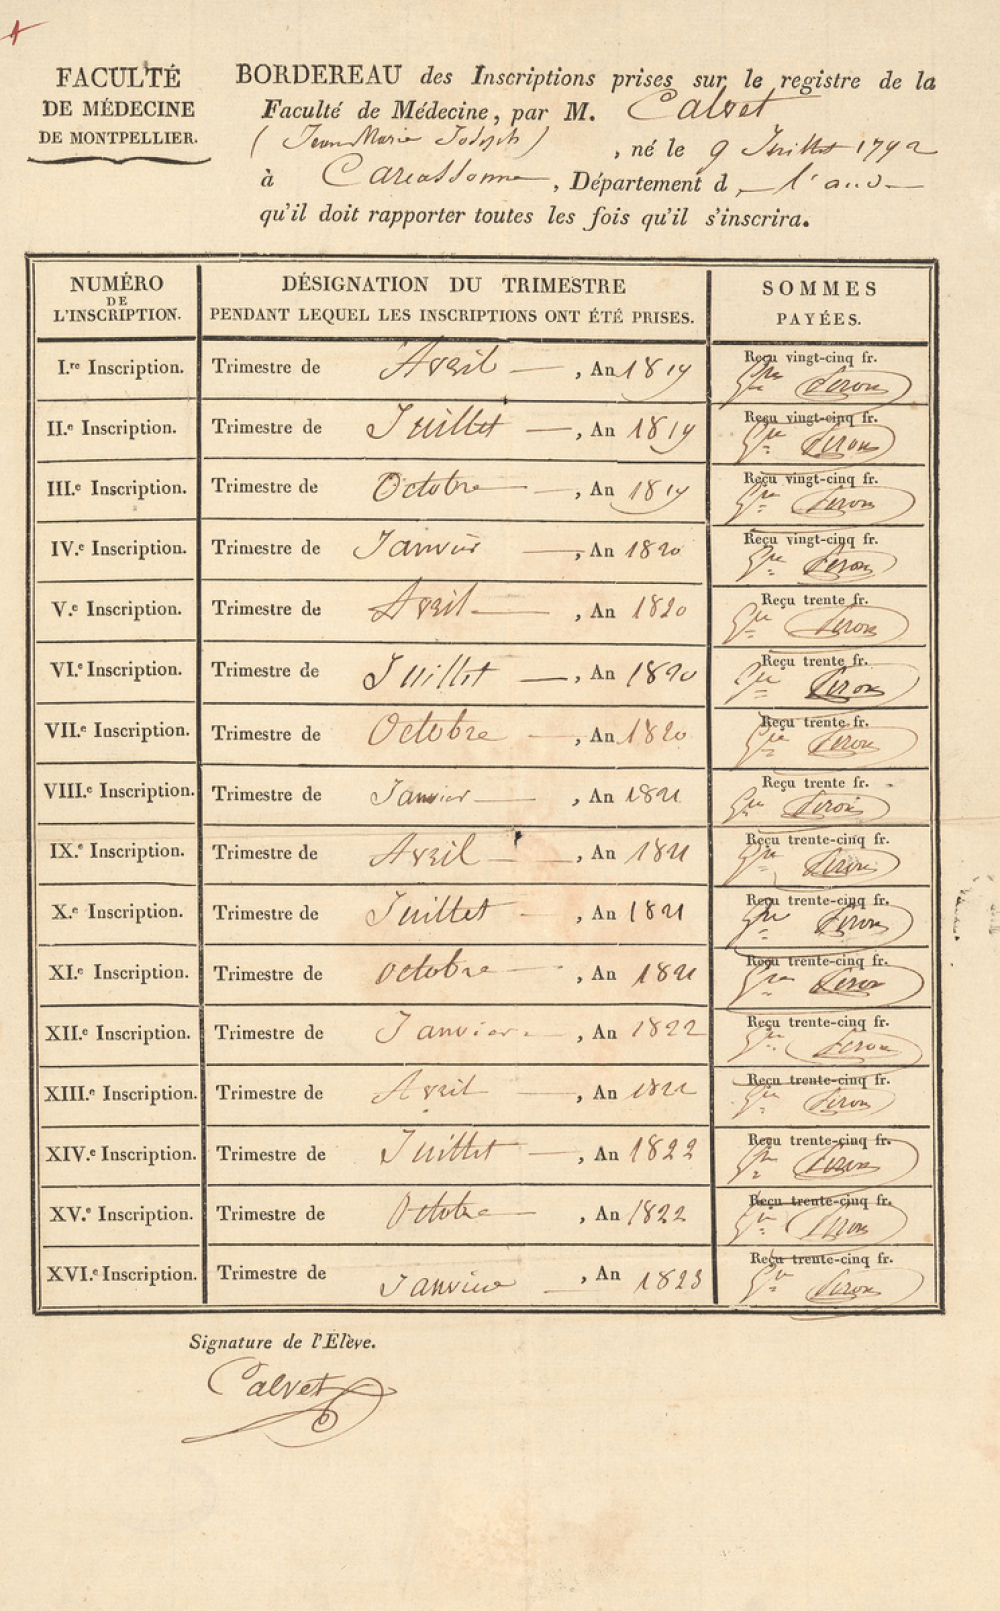 FACULTÉ
DE MÉDECINE
DE MONTPELLIER.
BORDEREAU des Inscriptions prises sur le registre de la
Faculté de Médecine, par M. Calvet
(Jean Marie Joseph) , né le 9 Juillet 1792
à Carcassonne, Département d l'aude
qu'il doit rapporter toutes les fois qu'il s'inscrira.
NUMÉRO DE L'INSCRIPTION. DÉSIGNATION DU TRIMESTRE PENDANT LEQUEL LES INSCRIPTIONS ONT ÉTÉ PRISES. SOMMES PAYÉES.
I.re Inscription. Trimestre de Avril , An 1819 Reçu vingt-cinq fr.
II.e Inscription. Trimestre de Juillet , An 1819 Reçu vingt-cinq fr.
III.e Inscription. Trimestre de Octobre , An 1819 Reçu vingt-cinq fr.
IV.e Inscription. Trimestre de Janvier , An 1820 Reçu vingt-cinq fr.
V.e Inscription. Trimestre de Avril , An 1820 Reçu trente fr.
VI.e Inscription. Trimestre de Juillet , An 1820 Reçu trente fr.
VII.e Inscription. Trimestre de Octobre , An 1820 Reçu trente fr.
VIII.e Inscription. Trimestre de Janvier , An 1821 Reçu trente fr.
IX.e Inscription. Trimestre de Avril , An 1821 Reçu trente-cinq fr.
X.e Inscription. Trimestre de Juillet , An 1821 Reçu trente-cinq fr.
XI.e Inscription. Trimestre de octobre , An 1821 Reçu trente-cinq fr.
XII.e Inscription. Trimestre de Janvier , An 1822 Reçu trente-cinq fr.
XIII.e Inscription. Trimestre de Avril , An 1822 Reçu trente-cinq fr.
XIV.e Inscription. Trimestre de Juillet , An 1822 Reçu trente-cinq fr.
XV.e Inscription. Trimestre de Octobre , An 1822 Reçu trente-cinq fr.
XVI.e Inscription. Trimestre de Janvier , An 1823 Reçu trente-cinq fr.
Signature de l'Élève.
Calvet